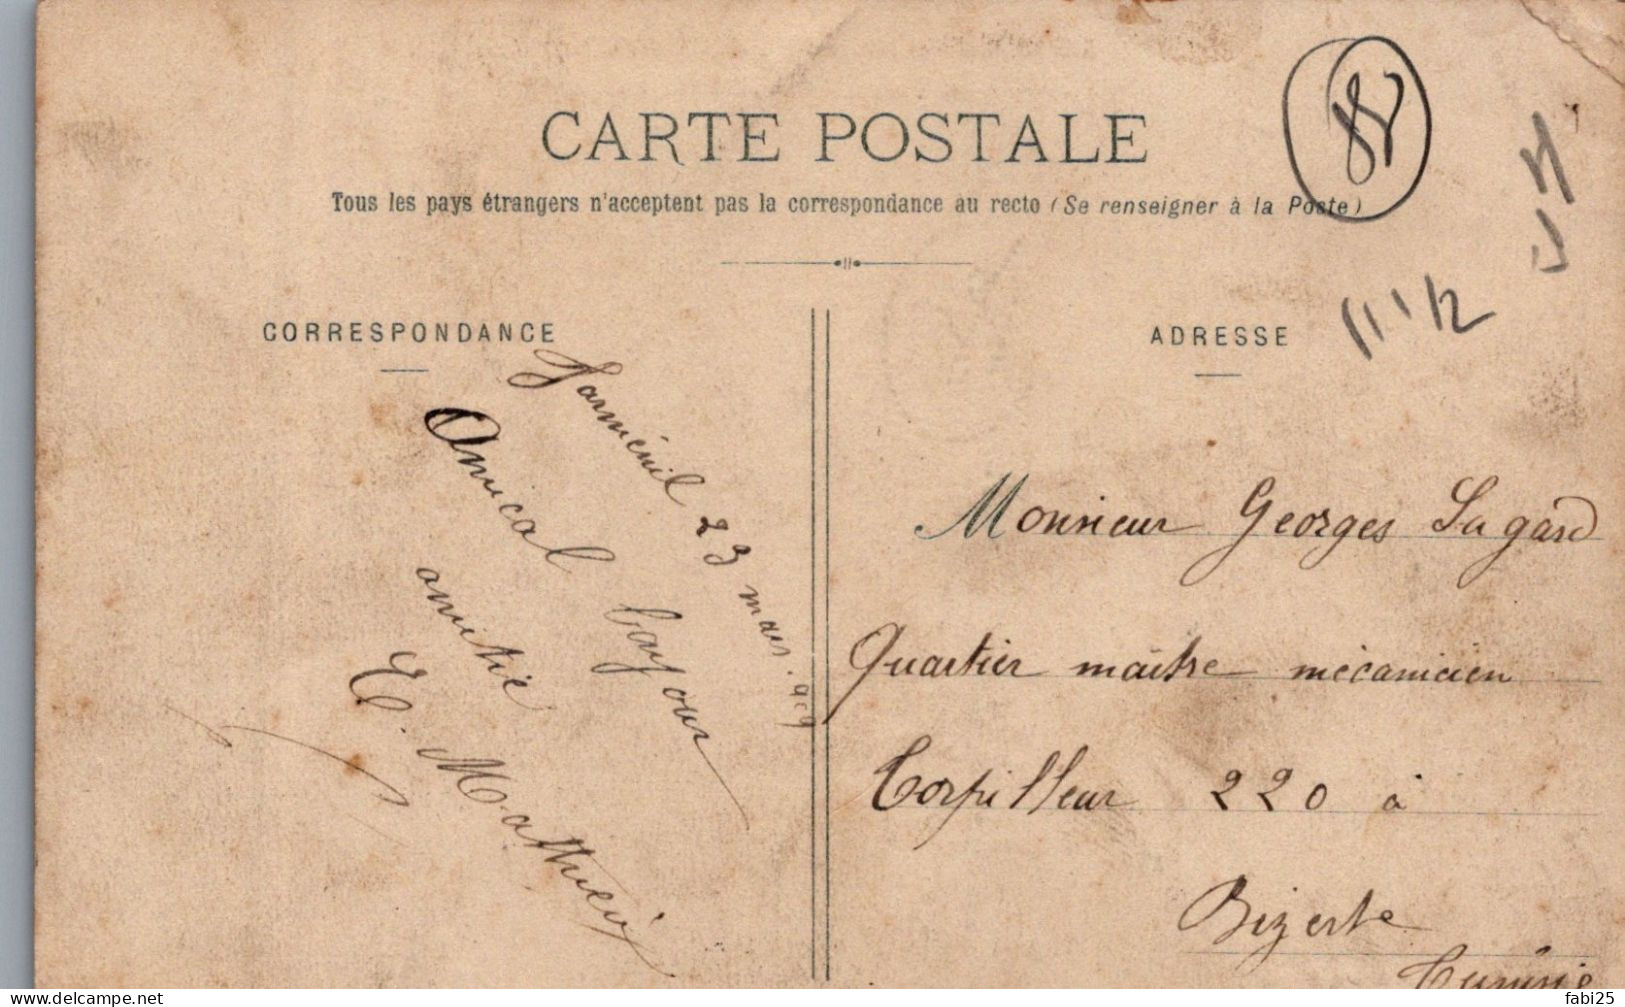 CARTE POSTALE
Tous les pays étrangers n'acceptent pas la correspondance au recto (Se renseigner à la Poste)
CORRESPONDANCE
Jarménil 23 mars 909
Amical bonjour
amitié
E. Mathieu
ADRESSE
88
Monsieur Georges Sagard
Quartier maître mécanicien
Torpilleur 220 à
Bizerte
Tunisie
fabi25